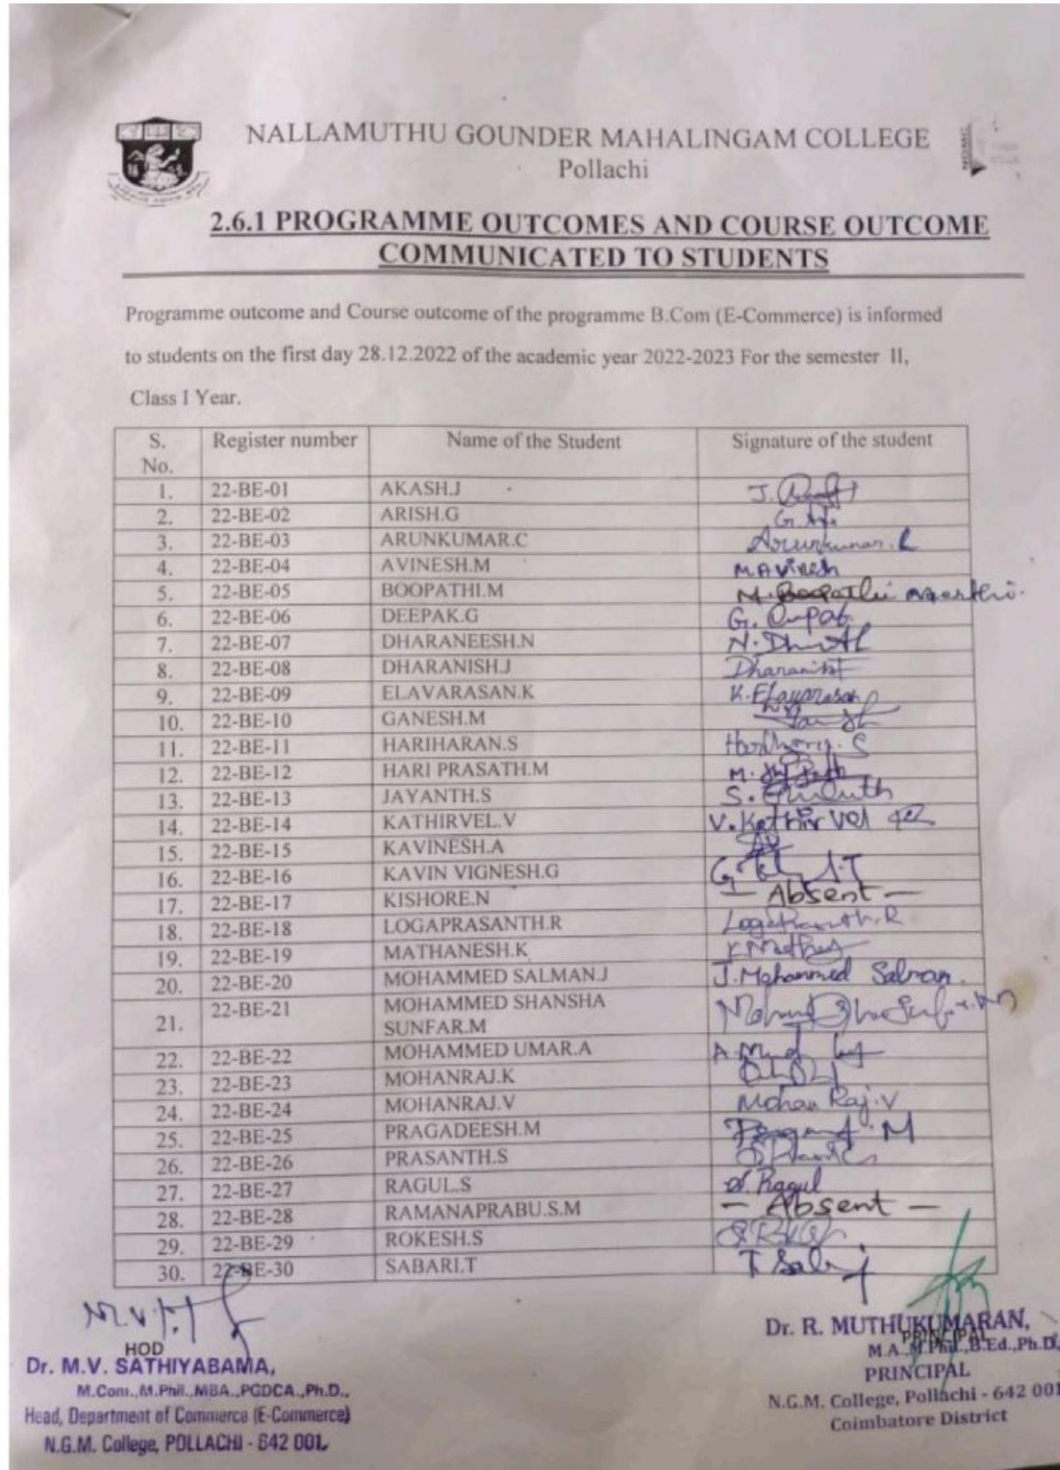 NALLAMUTHU GOUNDER MAHALINGAM COLLEGE
Pollachi
2.6.1 PROGRAMME OUTCOMES AND COURSE OUTCOME
COMMUNICATED TO STUDENTS
Programme outcome and Course outcome of the programme B.Com (E-Commerce) is informed
to students on the first day 28.12.2022 of the academic year 2022-2023 For the semester II,
Class I Year.
S. No. Register number Name of the Student Signature of the student
1. 22-BE-01 AKASH.J J.
2. 22-BE-02 ARISH.G G.
3. 22-BE-03 ARUNKUMAR.C Arunkumar.
4. 22-BE-04 AVINESH.M M.Avinesh
5. 22-BE-05 BOOPATHI.M M.Boopathi
6. 22-BE-06 DEEPAK.G G.
7. 22-BE-07 DHARANEESH.N N.
8. 22-BE-08 DHARANISH.J
9. 22-BE-09 ELAVARASAN.K K.Elavarasan
10. 22-BE-10 GANESH.M
11. 22-BE-11 HARIHARAN.S
12. 22-BE-12 HARI PRASATH.M M.
13. 22-BE-13 JAYANTH.S S.
14. 22-BE-14 KATHIRVEL.V V.Kathirvel
15. 22-BE-15 KAVINESH.A
16. 22-BE-16 KAVIN VIGNESH.G G
17. 22-BE-17 KISHORE.N - Absent -
18. 22-BE-18 LOGAPRASANTH.R
19. 22-BE-19 MATHANESH.K
20. 22-BE-20 MOHAMMED SALMAN.J J.Mohammed Salman.
21. 22-BE-21 MOHAMMED SHANSHA
SUNFAR.M
22. 22-BE-22 MOHAMMED UMAR.A
23. 22-BE-23 MOHANRAJ.K
24. 22-BE-24 MOHANRAJ.V Mohan Raj.V
25. 22-BE-25 PRAGADEESH.M
26. 22-BE-26 PRASANTH.S
27. 22-BE-27 RAGUL.S S.Ragul
28. 22-BE-28 RAMANAPRABU.S.M - Absent -
29. 22-BE-29 ROKESH.S
30. 22-BE-30 SABARI.T
HOD
Dr. M.V. SATHIYABAMA,
M.Com.,M.Phil.,MBA.,PGDCA.,Ph.D.,
Head, Department of Commerce (E-Commerce)
N.G.M. College, POLLACHI - 642 001.
Dr. R. MUTHUKUMARAN,
PRINCIPAL
M.A.,M.Phil.,B.Ed.,Ph.D,
PRINCIPAL
N.G.M. College, Pollachi - 642 001
Coimbatore District